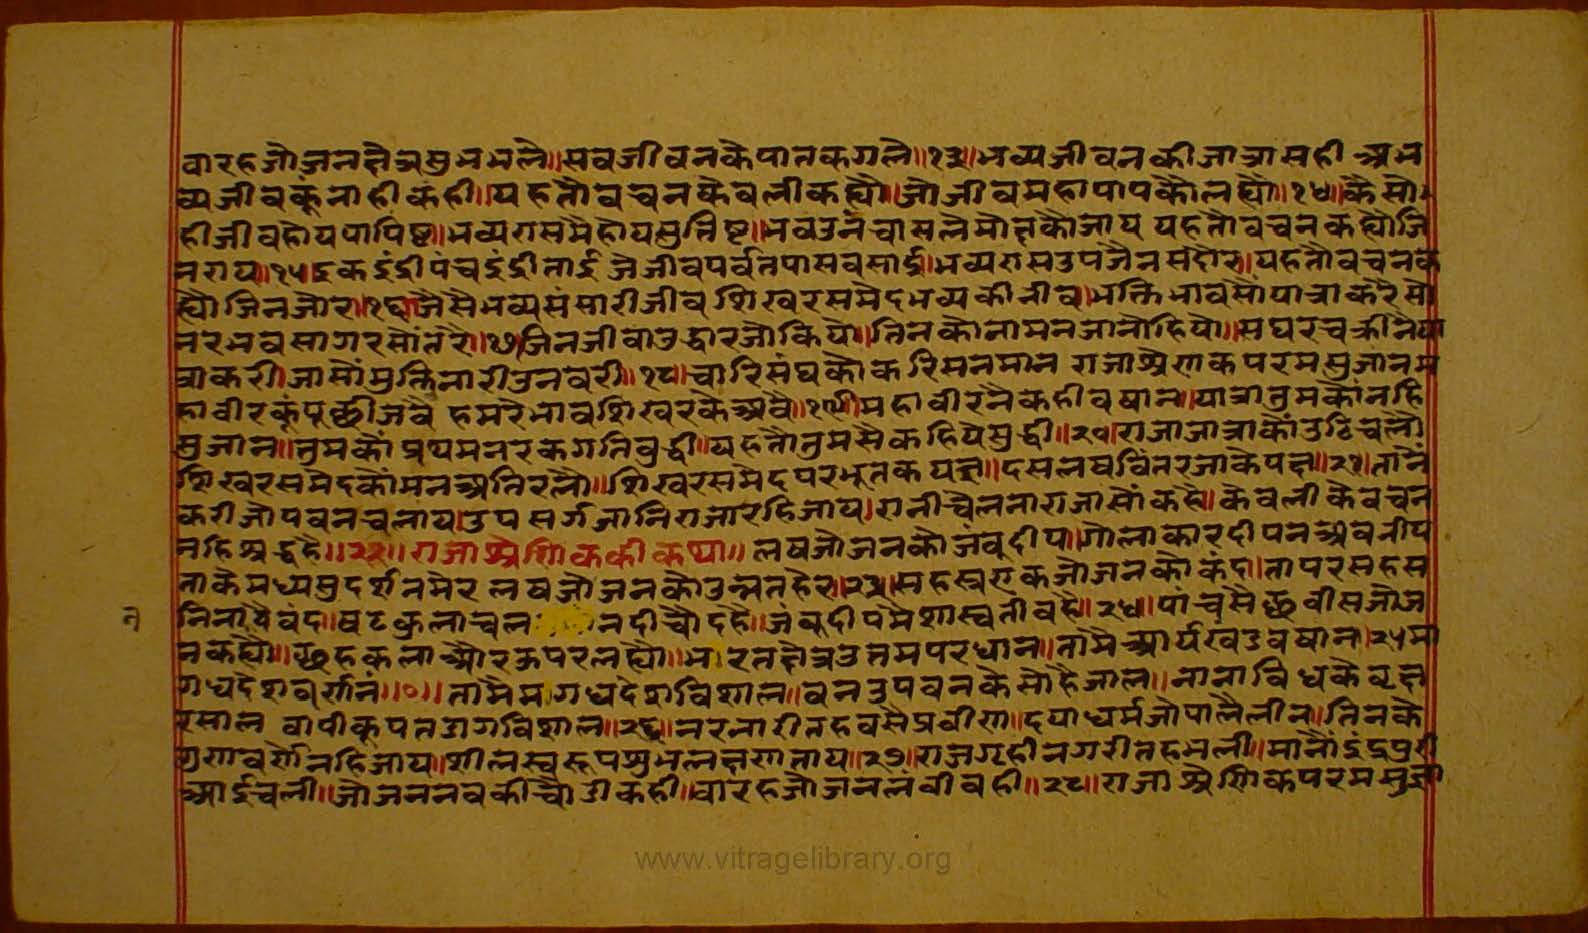 वारहजोजनक्षेत्रसुभभलै॥सवजीवनकैपातकगलै॥१३॥भव्यजीवनकीजात्रासही अभ
व्यजीवकूंनाहीकही॥यहतौवचनकेवलीकह्यौ॥जोजीवमहापापकौलह्यौ॥१४॥कैसो
हीजीवहोयपापिष्ट॥भव्यरासमैहोयसुनिष्ट॥भवउनंचासलैमोक्षकौजाय यहतौवचनकह्योजि
नराय॥१५॥इकइंद्रीपंचइंद्रीताई जेजीवपर्वतपासवसाई॥भव्यरासउपजैनसंदेह॥यहतौवचनक
ह्यौजिनजोर॥१६॥जैसैभव्यसंसारीजीव शिखरसमेदभव्यकीनीव॥भक्तिभावसोंपात्राकरैसो
नरभवसागरसोंतरै॥१७॥जिनजीवाउद्धारजोकियौ॥तिनकोनामनजानोहियो॥सघरचक्रीनैया
त्राकरी॥जासौंमुक्तिनारीउनवरी॥१८॥चारिसंघकौकरिसनमान राजाश्रेणकपरमसुजानम
हावीरकूंपूछीजवै हमरैभावशिखरकेअवै॥१९॥महावीरनैकहीवषान॥यात्रातुमकौंनहि
सुजान॥तुमकौप्रथमनरकगतिवुद्धी॥यहतौतुमसैकहियेसुद्धी॥२०॥राजाजात्राकौंउठिचलौ
शिखरसमेदकौंमनअतिरलौ॥शिखरसमेदपरभूतकयक्ष॥दसलषवितरजाकेपक्ष॥२१॥तानें
करीजोपवनचलाय॥उपसर्गजानिराजारहिजाय॥रानीचेलनाराजासोंकहै॥केवलीकेवचन
नहिश्रद्धहै॥२२॥राजाश्रेणिककीकथा॥लषजोजनकौजंवुदीप॥गोलाकारदीपनअवनीप
ताकेमध्यसुदर्शनमेर लषजोजनकौउन्नतहेर॥२३॥सहस्त्रएकजोजनकौकंद॥तापरसहस
निनाणैवंद॥षटकुलाचल नदीचौदहै॥जंवुदीपमैशास्वतीवहै॥२४॥पांचसैछवीसजोज
नकह्यौ॥छहकलाऔरऊपरलह्यौ॥भारतक्षेत्रउत्तमपरधान॥तामैआर्यखंडवषान॥२५॥मा
गधदेशवर्णनं॥०॥तामैमागधदेशविशाल॥वनउपवनकैसोहैजाल॥नानाविधकेवृक्ष
रसाल वापीकूपतडागविशाल॥२६॥नरनारीतहवसैप्रवीण॥दयाधर्मजोपालैलीन॥तिनके
गुणवर्णेनहिजाय॥शीलस्वरूपशुभलक्षणताय॥२७॥राजगृहीनगरीतहभली॥मानौंइंद्रपुरी
आईचली॥जोजननवकीचौडीकही॥वारहजोजनलंवीवही॥२८॥राजाश्रेणिकपरमसुजा
www.vitragelibrary.org